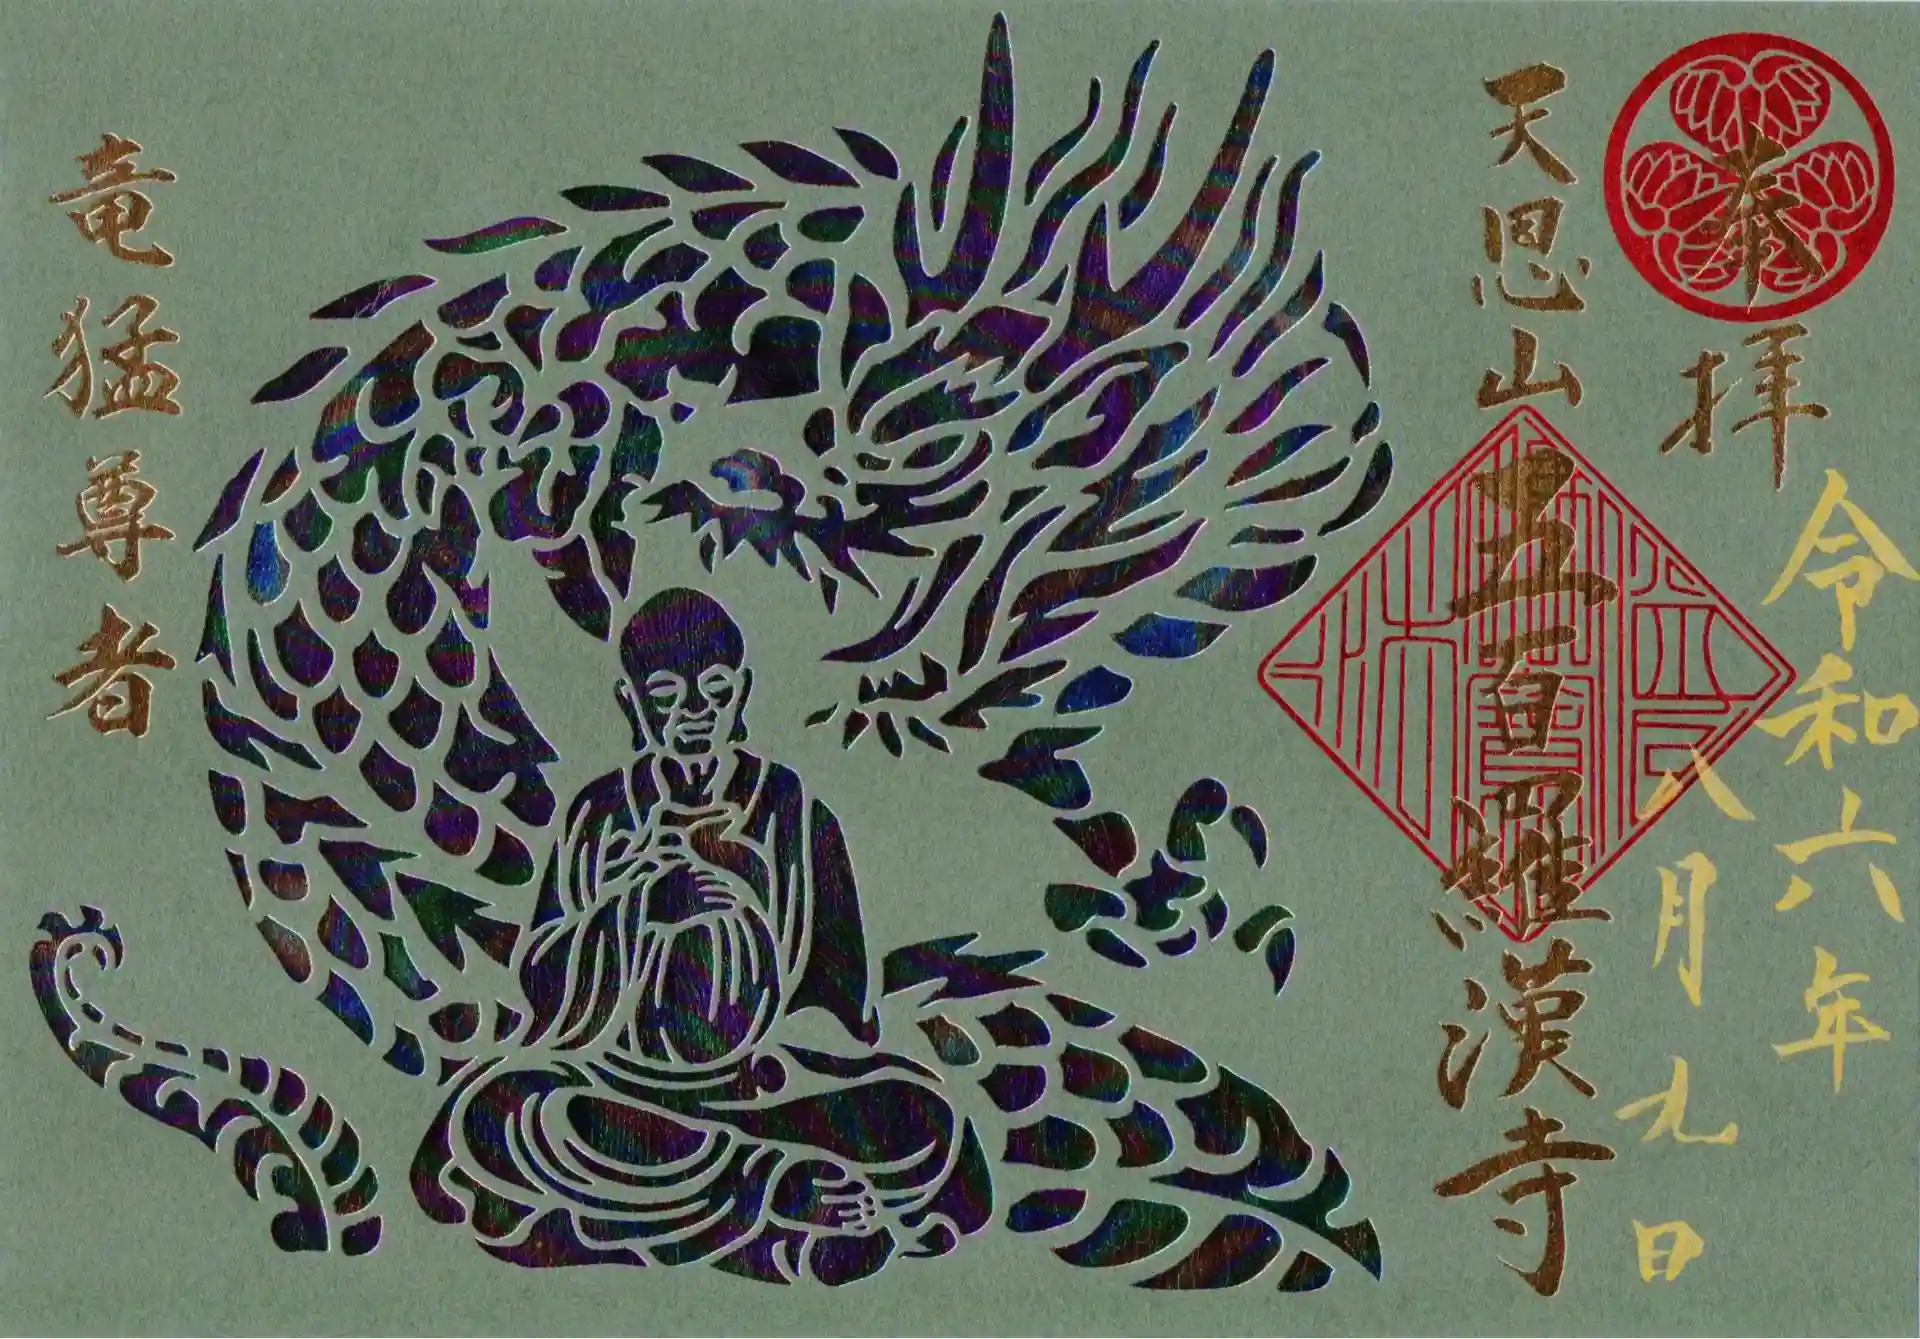 奉拝
令和六年
八月九日
天恩山
五百羅漢寺
竜猛尊者